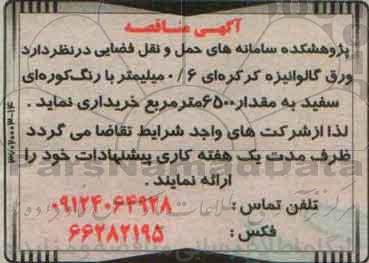 آگهی مناقصه
پژوهشکده سامانه های حمل و نقل فضایی درنظردارد
ورق گالوانیزه کرکره‌ای ۰/۶ میلیمتر با رنگ‌کوره‌ای
سفید به مقدار ۶۵۰۰مترمربع خریداری نماید .
لذا ازشرکت های واجد شرایط تقاضا می گردد
ظرف مدت یک هفته کاری پیشنهادات خود را
ارائه نمایند .
تلفن تماس : ۰۹۱۲۴۰۶۴۹۲۸
فکس : ۶۶۲۸۲۱۹۵
ParsNamadData